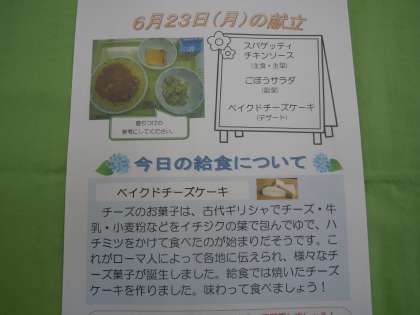 6月23日(月)の献立
スパゲッティ
チキンソース
(主食・主菜)
ごぼうサラダ
(副菜)
ベイクドチーズケーキ
(デザート)
盛りつけの
参考にしてください。
今日の給食について
ベイクドチーズケーキ
チーズのお菓子は、古代ギリシャでチーズ・牛
乳・小麦粉などをイチジクの葉で包んでゆで、ハ
チミツをかけて食べたのが始まりだそうです。こ
れがローマ人によって各地に伝えられ、様々なチ
ーズ菓子が誕生しました。給食では焼いたチーズ
ケーキを作りました。味わって食べましょう！